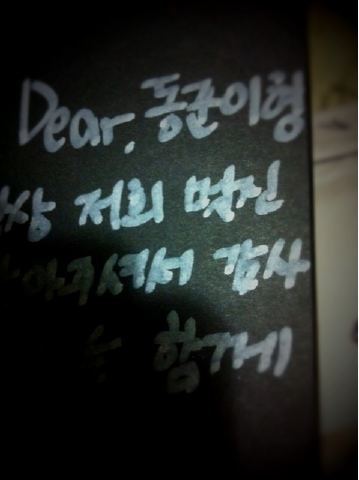 Dear. 동균이형
상 저희 멋진
아주셔서 감사
함께